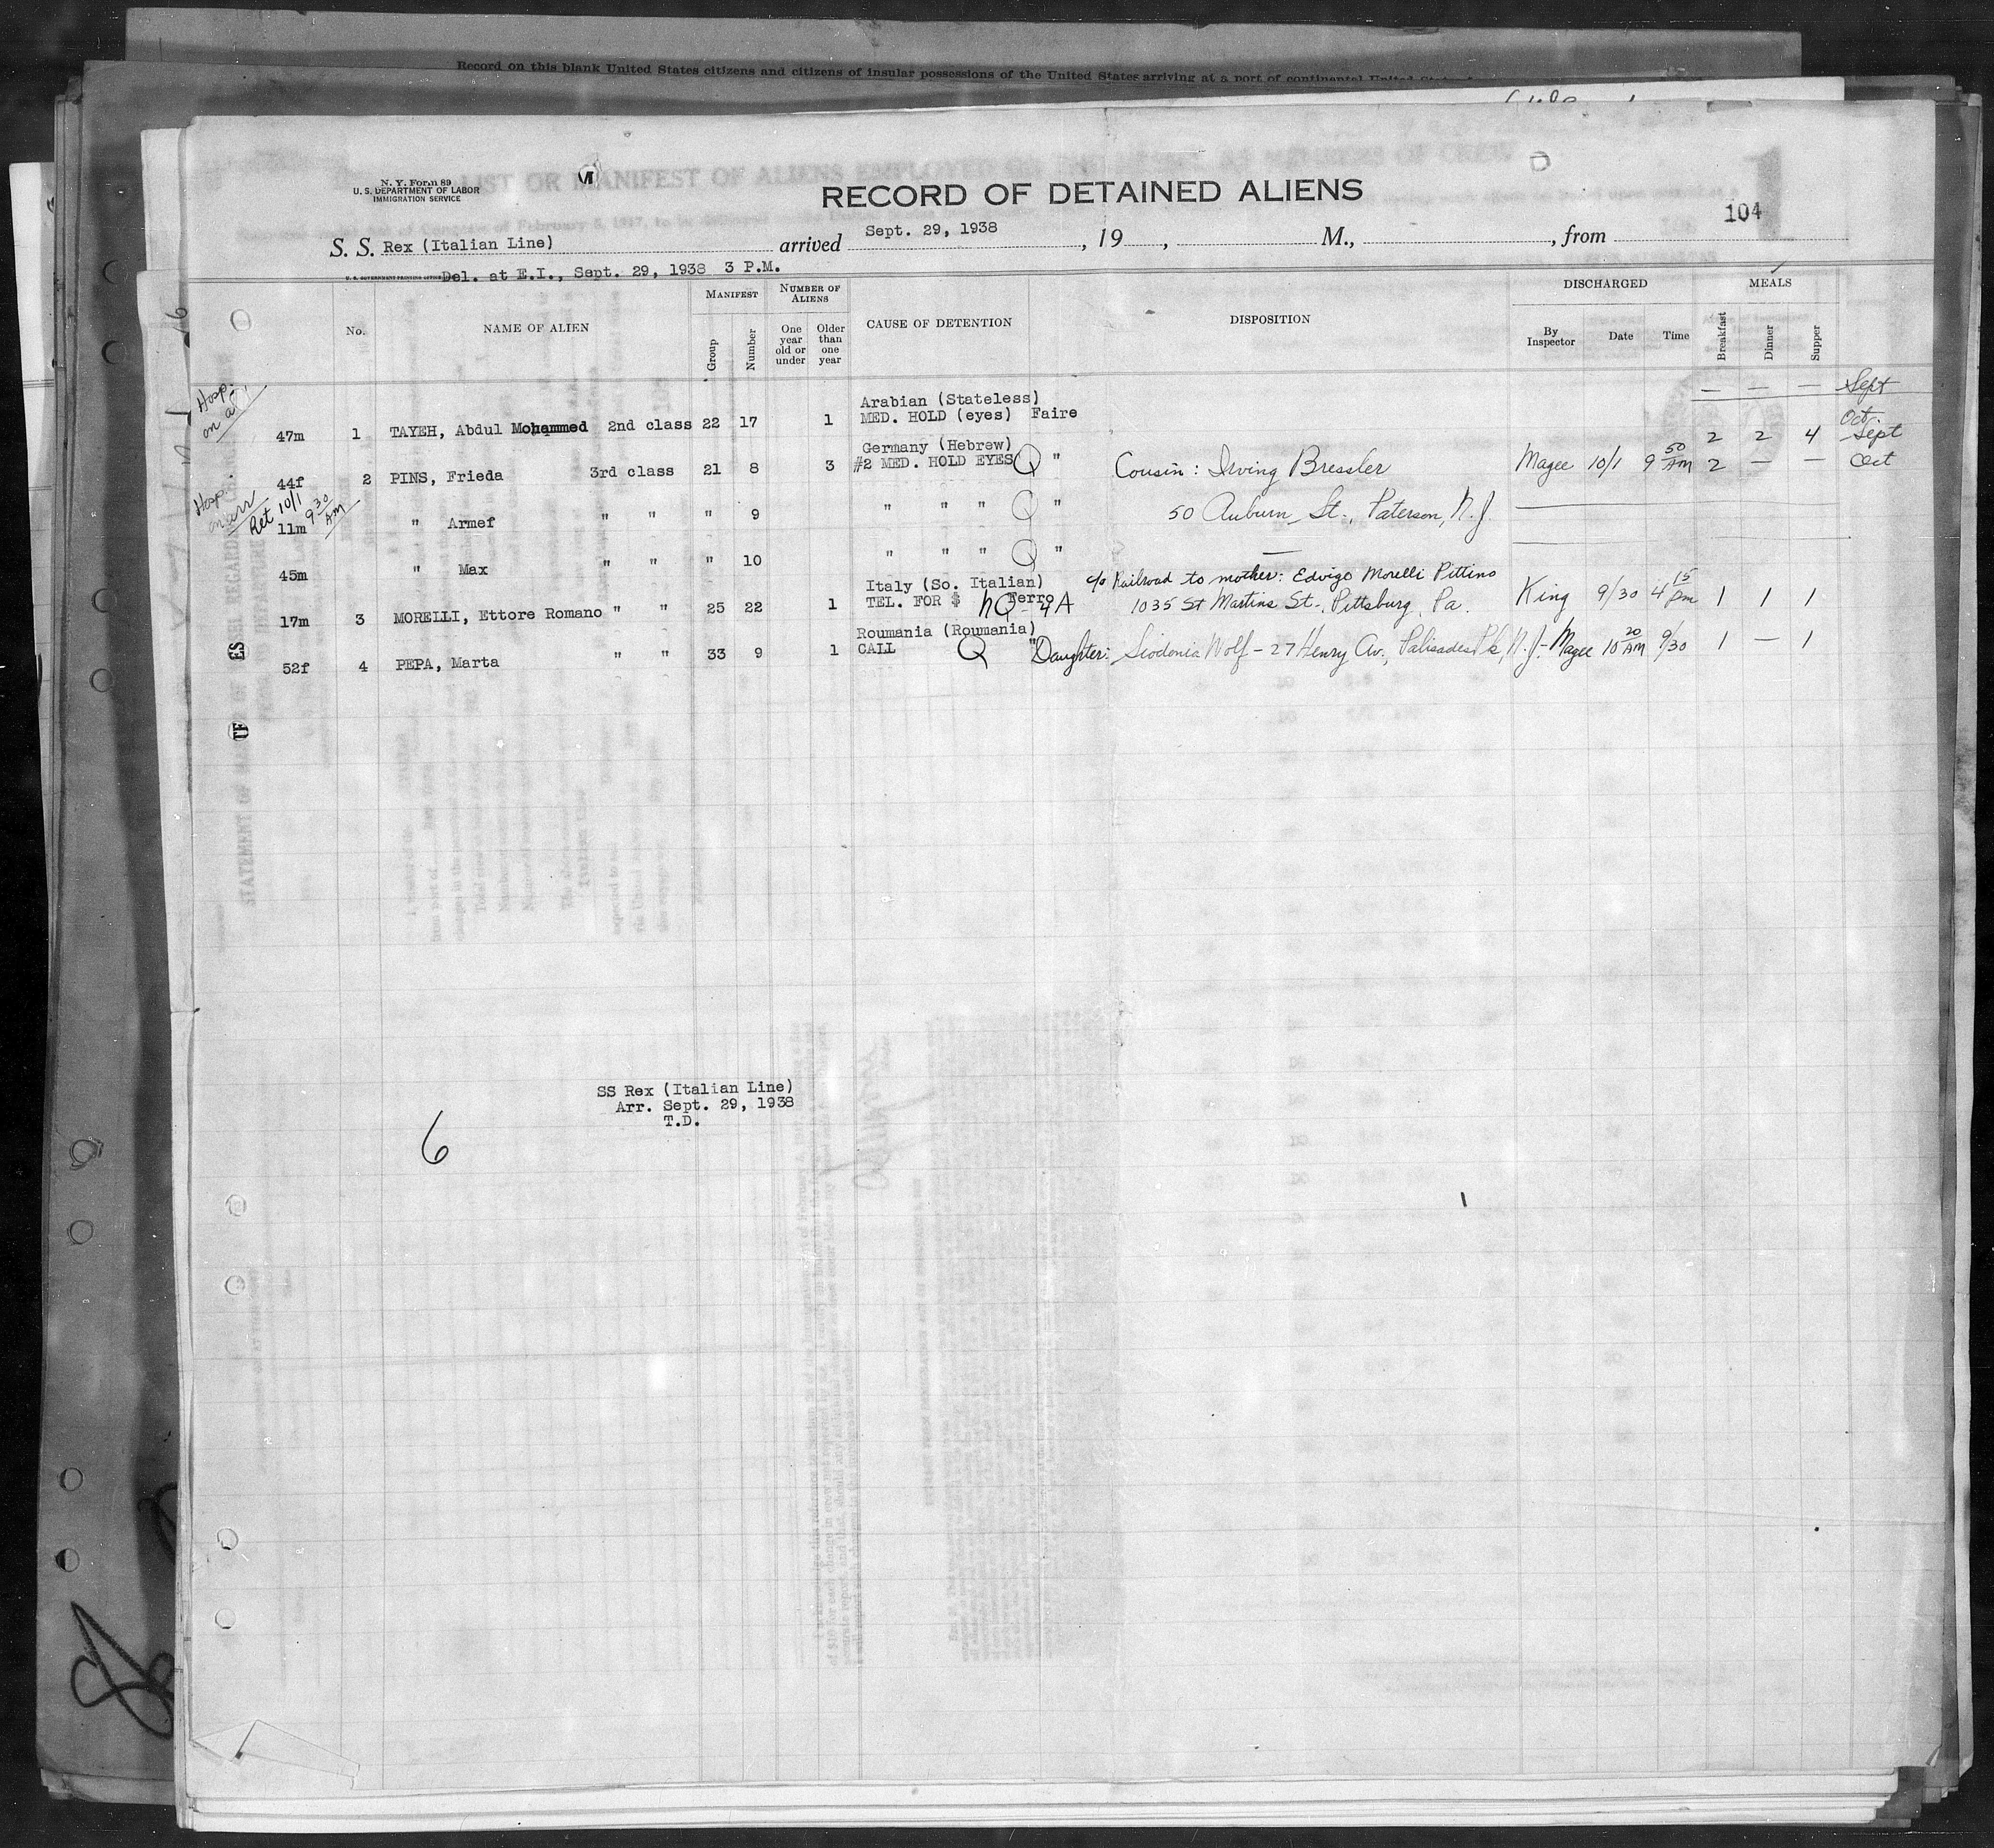 Record on this blank United States citizens and citizens of insular possessions of the United States arriving at a port of continental United
N. Y. Form 89
U. S. DEPARTMENT OF LABOR
IMMIGRATION SERVICE
LIST OR MANIFEST OF ALIENS EMPLOYED ON THE VESSEL AS MEMBERS OF CREW
RECORD OF DETAINED ALIENS
104
S. S. Rex (Italian Line) arrived Sept. 29, 1938, 19 , M., , from
U. S. GOVERNMENT PRINTING OFFICE Del. at E.I., Sept. 29, 1938 3 P.M.
No. NAME OF ALIEN MANIFEST Group Number NUMBER OF ALIENS One year old or under Older than one year CAUSE OF DETENTION DISPOSITION DISCHARGED By Inspector Date Time MEALS Breakfast Dinner Supper
Hosp. on — — — Sept
Arabian (Stateless)
47m 1 TAYEH, Abdul Mohammed 2nd class 22 17 1 MED. HOLD (eyes) Faire Oct.
Germany (Hebrew) 2 2 4 Sept
44f 2 PINS, Frieda 3rd class 21 8 3 #2 MED. HOLD EYES Q " Cousin: Irving Bressler Magee 10/1 9 50 AM 2 — — Oct
Hosp. on arr Ret 10/1 9 30 AM
11m " Armef " " " 9 " " " Q " 50 Auburn St., Paterson, N.J.
45m " Max " " " 10 " " " Q " —
Italy (So. Italian) c/o Railroad to mother: Edvigo Morelli Pittino
17m 3 MORELLI, Ettore Romano " " 25 22 1 TEL. FOR $ Ferro NQ-4A 1035 St Martins St., Pittsburg, Pa. King 9/30 4 15 pm 1 1 1
Roumania (Roumania)
52f 4 PEPA, Marta " " 33 9 1 CALL Q " Daughter: Siodonia Wolf - 27 Henry Av., Palisades Pk, N.J. - Magee 10 20 AM 9/30 1 — 1
SS Rex (Italian Line)
Arr. Sept. 29, 1938
T.D.
6